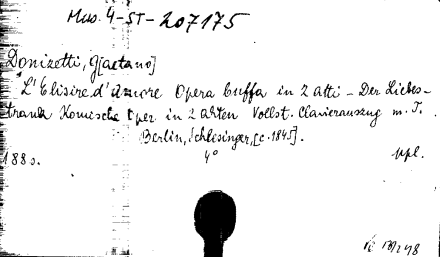 Mus. 4-ST-207175
Donizetti, G[aetano]
L'Elisire d'amore Opera buffa in 2 atti - Der Liebes-
trank Komische Oper in 2 Akten Vollst. Clavierauszug m. T.
Berlin, Schlesinger, [c. 1845].
188 s. 4° ppl.